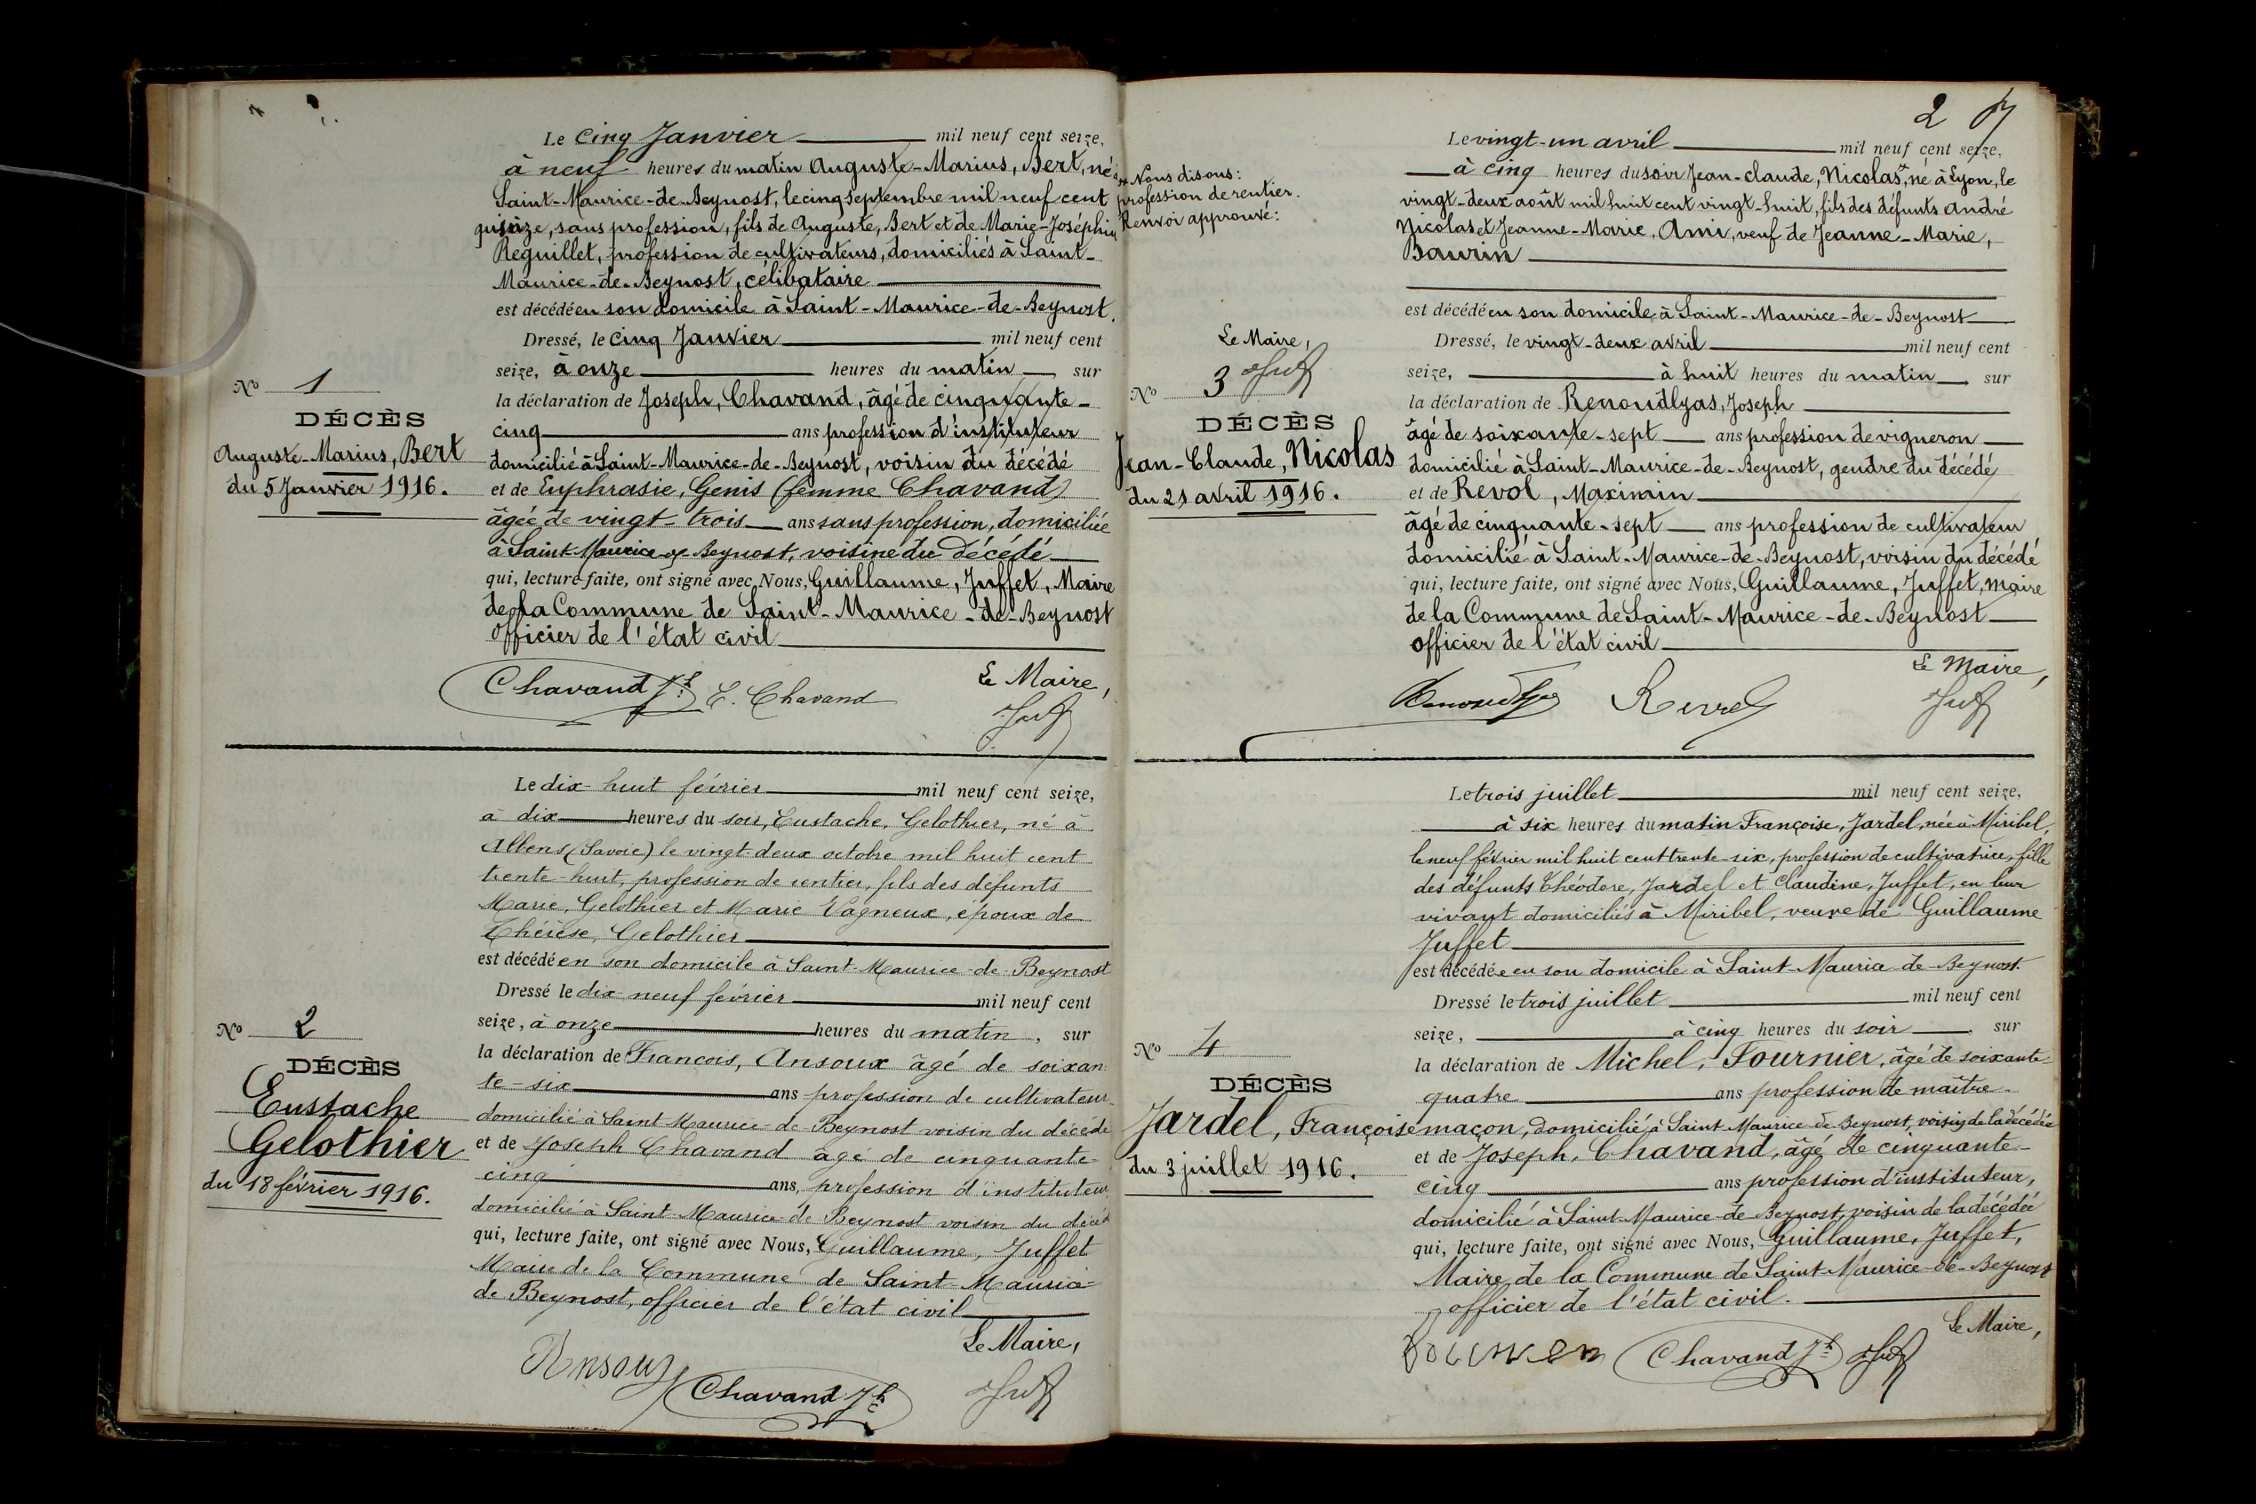 Le cinq Janvier mil neuf cent seize,
à neuf heures du matin Auguste-Marius, Bert, né à
Saint-Maurice-de-Beynost, le cinq septembre mil neuf cent
quinze, sans profession, fils de Auguste, Bert et de Marie-Joséphine
Reguillet, profession de cultivateurs, domiciliés à Saint-
Maurice-de-Beynost, célibataire
est décédé en son domicile à Saint-Maurice-de-Beynost.
Dressé, le cinq Janvier mil neuf cent
seize, à onze heures du matin, sur
la déclaration de Joseph, Chavand, âgé de cinquante-
cinq ans profession d'instituteur
domicilié à Saint-Maurice-de-Beynost, voisin du décédé
et de Euphrasie, Genis (femme Chavand)
âgée de vingt-trois ans sans profession, domiciliée
à Saint-Maurice-de-Beynost, voisine du décédé
qui, lecture faite, ont signé avec Nous, Guillaume, Juffet, Maire
de la Commune de Saint-Maurice-de-Beynost
officier de l'état civil
Le Maire,
Chavand Jh E. Chavand
Nº 1
DÉCÈS
Auguste-Marius, Bert
du 5 Janvier 1916.
Le dix-huit février mil neuf cent seize,
à dix heures du soir, Eustache, Gelothier, né à
Albens (Savoie) le vingt-deux octobre mil huit cent
trente-huit, profession de rentier, fils des défunts
Marie, Gelothier et Marie Vagneux, époux de
Thérèse, Gelothier
est décédé en son domicile à Saint-Maurice-de-Beynost
Dressé le dix-neuf février mil neuf cent
seize, à onze heures du matin, sur
la déclaration de François, Ansoux âgé de soixan-
te-six ans profession de cultivateur
domicilié à Saint Maurice-de-Beynost voisin du décédé
et de Joseph Chavand âgé de cinquante-
cinq ans, profession d'instituteur
domicilié à Saint-Maurice-de-Beynost voisin du décédé
qui, lecture faite, ont signé avec Nous, Guillaume, Juffet
Maire de la Commune de Saint-Maurice-
de Beynost, officier de l'état civil
Le Maire,
Ansoux
Chavand Jh
Nº 2
DÉCÈS
Eustache
Gelothier
du 18 février 1916.
2
Le vingt-un avril mil neuf cent seize,
à cinq heures du soir Jean-Claude, Nicolas*, né à Lyon, le
vingt-deux août mil huit cent vingt-huit, fils des défunts André
Nicolas et Jeanne-Marie, Ami, veuf de Jeanne-Marie,
Baurin
est décédé en son domicile à Saint-Maurice-de-Beynost
Dressé, le vingt-deux avril mil neuf cent
seize, à huit heures du matin, sur
la déclaration de Renoudlyas, Joseph
âgé de soixante-sept ans profession de vigneron
domicilié à Saint-Maurice-de-Beynost, gendre du décédé
et de Revol, Maximin
âgé de cinquante-sept ans profession de cultivateur
domicilié à Saint-Maurice-de-Beynost, voisin du décédé
qui, lecture faite, ont signé avec Nous, Guillaume, Juffet, Maire
de la Commune de Saint-Maurice-de-Beynost
officier de l'état civil
Le Maire,
* Nous disons:
profession de rentier.
Renvoi approuvé:
Le Maire,
Nº 3
DÉCÈS
Jean-Claude, Nicolas
du 21 avril 1916.
Le trois juillet mil neuf cent seize,
à six heures du matin Françoise, Jardel, née à Miribel,
le neuf février mil huit cent trente-six, profession de cultivatrice, fille
des défunts Théodore, Jardel et Claudine, Juffet, en leur
vivant domiciliés à Miribel, veuve de Guillaume
Juffet
est décédée en son domicile à Saint-Maurice-de-Beynost.
Dressé le trois juillet mil neuf cent
seize, à cinq heures du soir, sur
la déclaration de Michel, Fournier, âgé de soixante-
quatre ans profession de maître-
maçon, domicilié à Saint Maurice-de-Beynost, voisin de la décédée
et de Joseph, Chavand, âgé de cinquante-
cinq ans profession d'instituteur,
domicilié à Saint-Maurice-de-Beynost, voisin de la décédée
qui, lecture faite, ont signé avec Nous, Guillaume, Juffet,
Maire de la Commune de Saint-Maurice-de-Beynost
officier de l'état civil.
Le Maire,
Chavand Jh
Nº 4
DÉCÈS
Jardel, Françoise
du 3 juillet 1916.